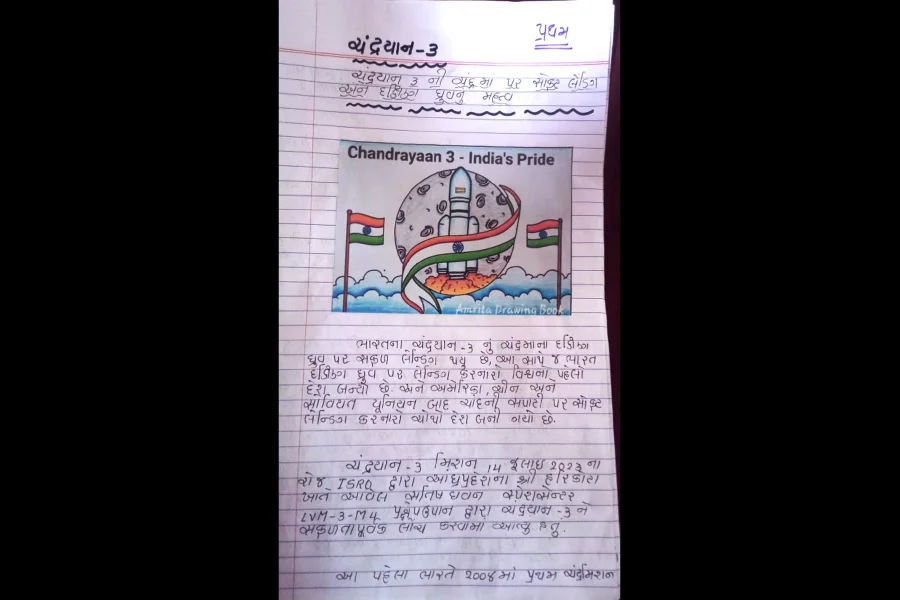 પ્રથમ
ચંદ્રયાન-3
ચંદ્રયાન 3 ની ચંદ્રમા પર સોફ્ટ લેંડિંગ
અને દક્ષિણ ધ્રુવનું મહત્વ
Chandrayaan 3 - India's Pride
Amrita Drawing Book
ભારતના ચંદ્રયાન-3 નું ચંદ્રમાના દક્ષિણ
ધ્રુવ પર સફળ લેન્ડિંગ થયુ છે, આ સાથે જ ભારત
દક્ષિણ ધ્રુવ પર લેન્ડિંગ કરનારો વિશ્વનો પહેલો
દેશ બન્યો છે. અને અમેરિકા, ચીન અને
સોવિયત યૂનિયન બાદ ચાંદની સપાટી પર સોફ્ટ
લેન્ડિંગ કરનારો ચોથો દેશ બની ગયો છે.
ચંદ્રયાન-3 મિશન 14 જુલાઇ ૨૦૨૩ ના
રોજ ISRO દ્વારા આંધ્રપ્રદેશના શ્રી હરિકોટા
ખાતે આવેલ સતિષ ધવન સ્પેસસેન્ટર
LVM-3-M4 દ્વારા ચંદ્રયાન-3 ને
સફળતાપૂર્વક લોંચ કરવામાં આવ્યુ હતું.
આ પહેલા ભારતે ૨૦૦૪માં પ્રથમ ચંદ્રમિશન